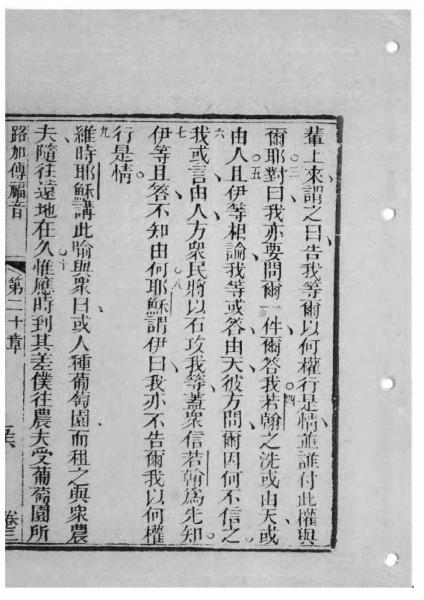 輩上來謂之曰告我等爾以何權行是情並誰付此權與
三四爾耶對曰我亦要問爾一件爾答我若翰之洗或由天或
五由人且伊等相論我等或答由天彼方問爾因何不信之
六我或言由人方衆民將以石攻我等蓋衆信若翰爲先知
七八伊等且答不知由何耶穌謂伊曰我亦不告爾我以何權
行是情
九維時耶穌講此喻與衆曰或人種葡萄園而租之與衆農
十夫隨往遠地在久惟應時到其差僕往農夫受葡萄園所
路加傳福音 第二十章 卷三